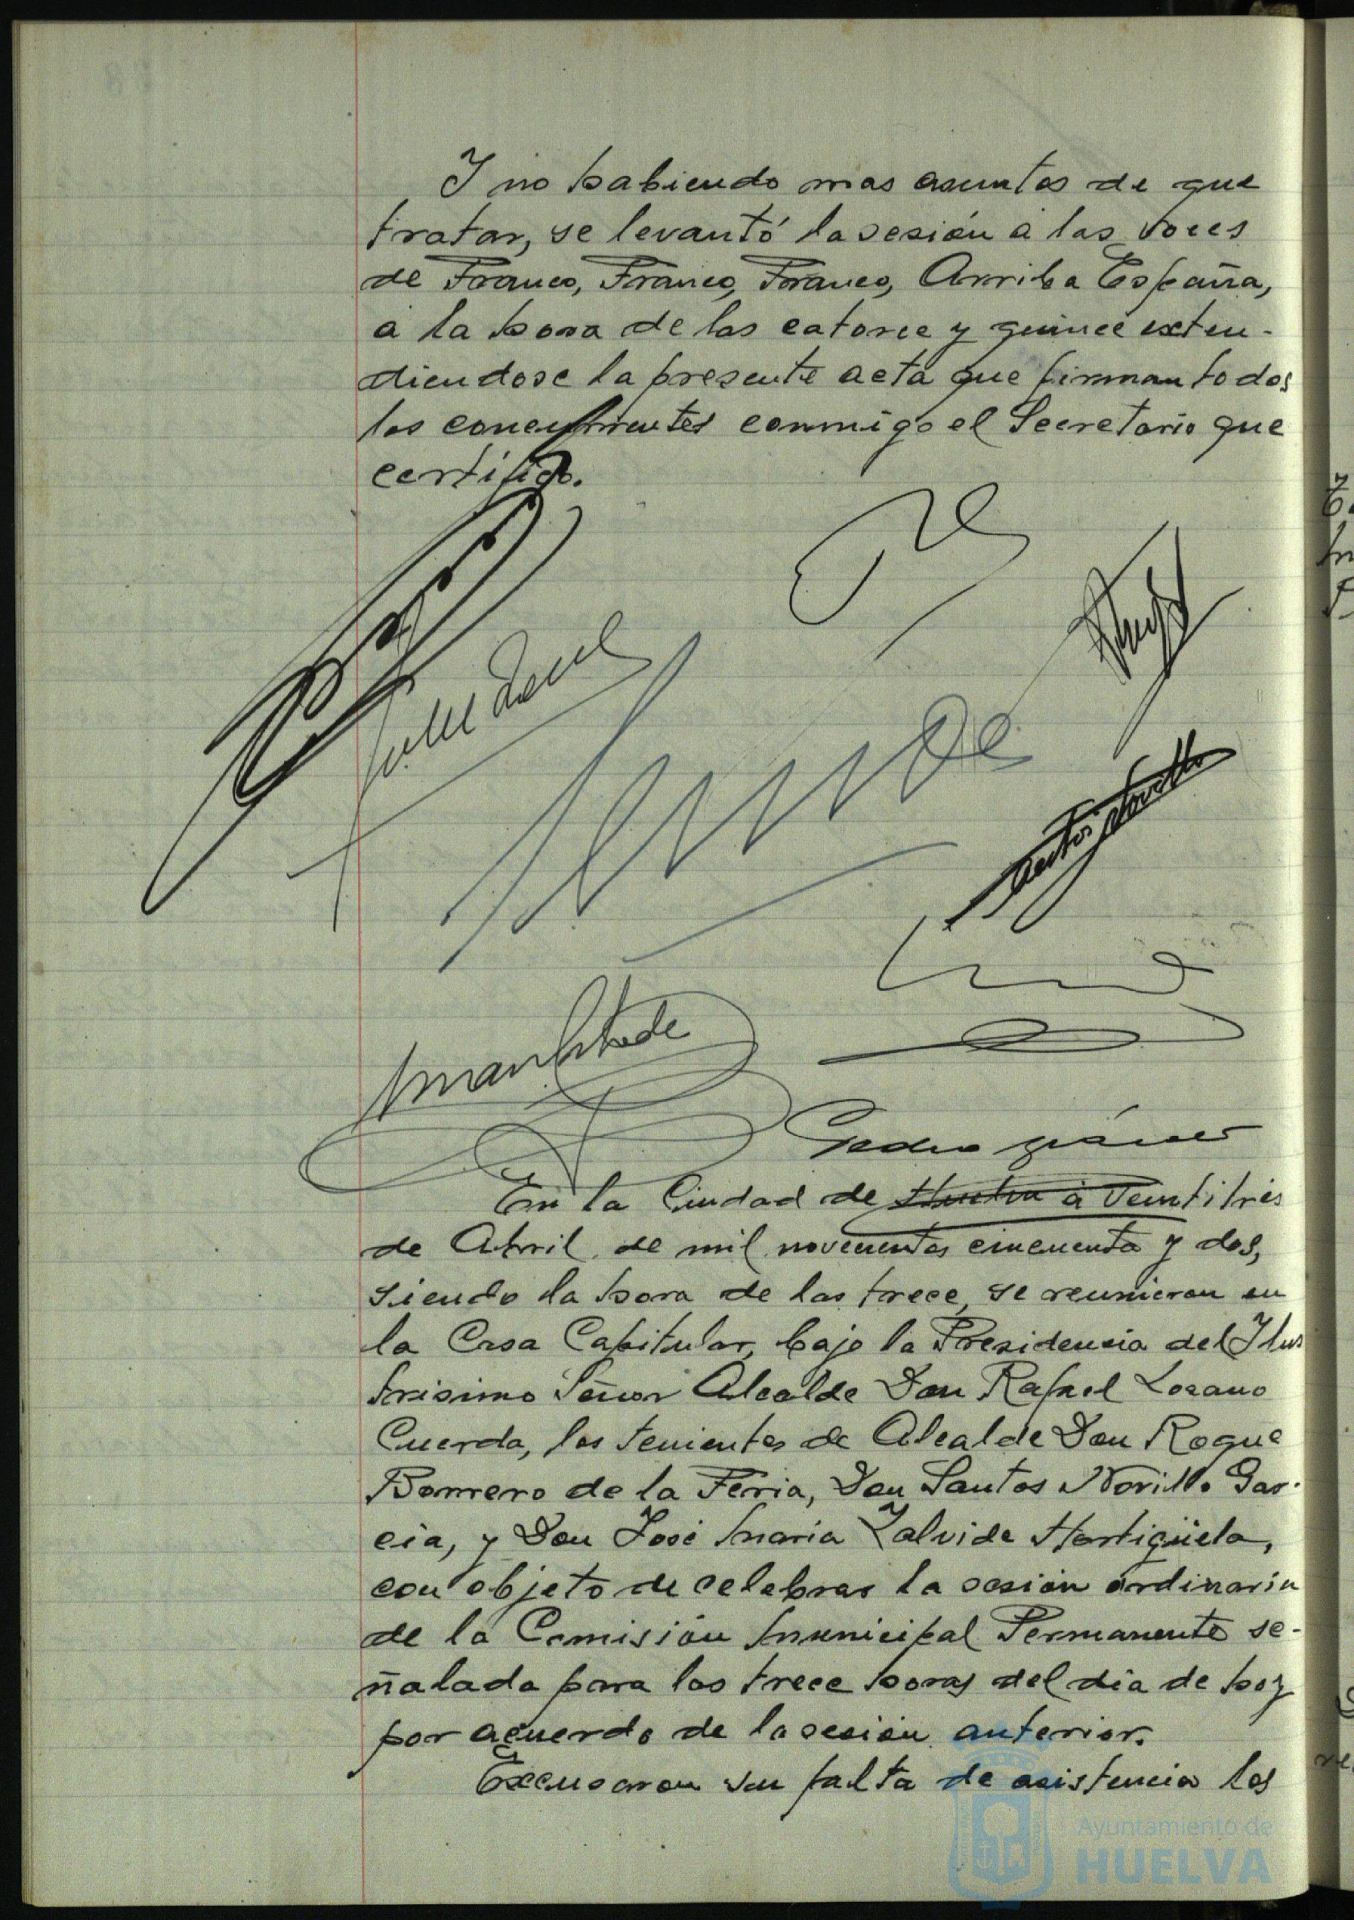 Y no habiendo mas asuntos de que
tratar, se levantó la sesión a las voces
de Franco, Franco, Franco, Arriba España,
a la hora de las catorce y quince exten-
diendose la presente acta que firman todos
los concurrentes conmigo el Secretario que
certifico.
Santos Novillo
Pedro
En la Ciudad de Huelva a Veintitrés
de Abril de mil novecientos cincuenta y dos,
siendo la hora de las trece, se reunieron en
la Casa Capitular, bajo la Presidencia del Ilus
trisimo Señor Alcalde Don Rafael Lozano
Cuerda, los tenientes de Alcalde Don Roque
Borrero de la Feria, Don Santos Novillo Gar-
cia, y Don José Maria Zalvide Hortigüela,
con objeto de celebrar la sesión ordinaria
de la Comisión Municipal Permanente se-
ñalada para las trece horas del dia de hoy
por acuerdo de la sesión anterior.
Excusaron su falta de asistencia los
Ayuntamiento de
HUELVA